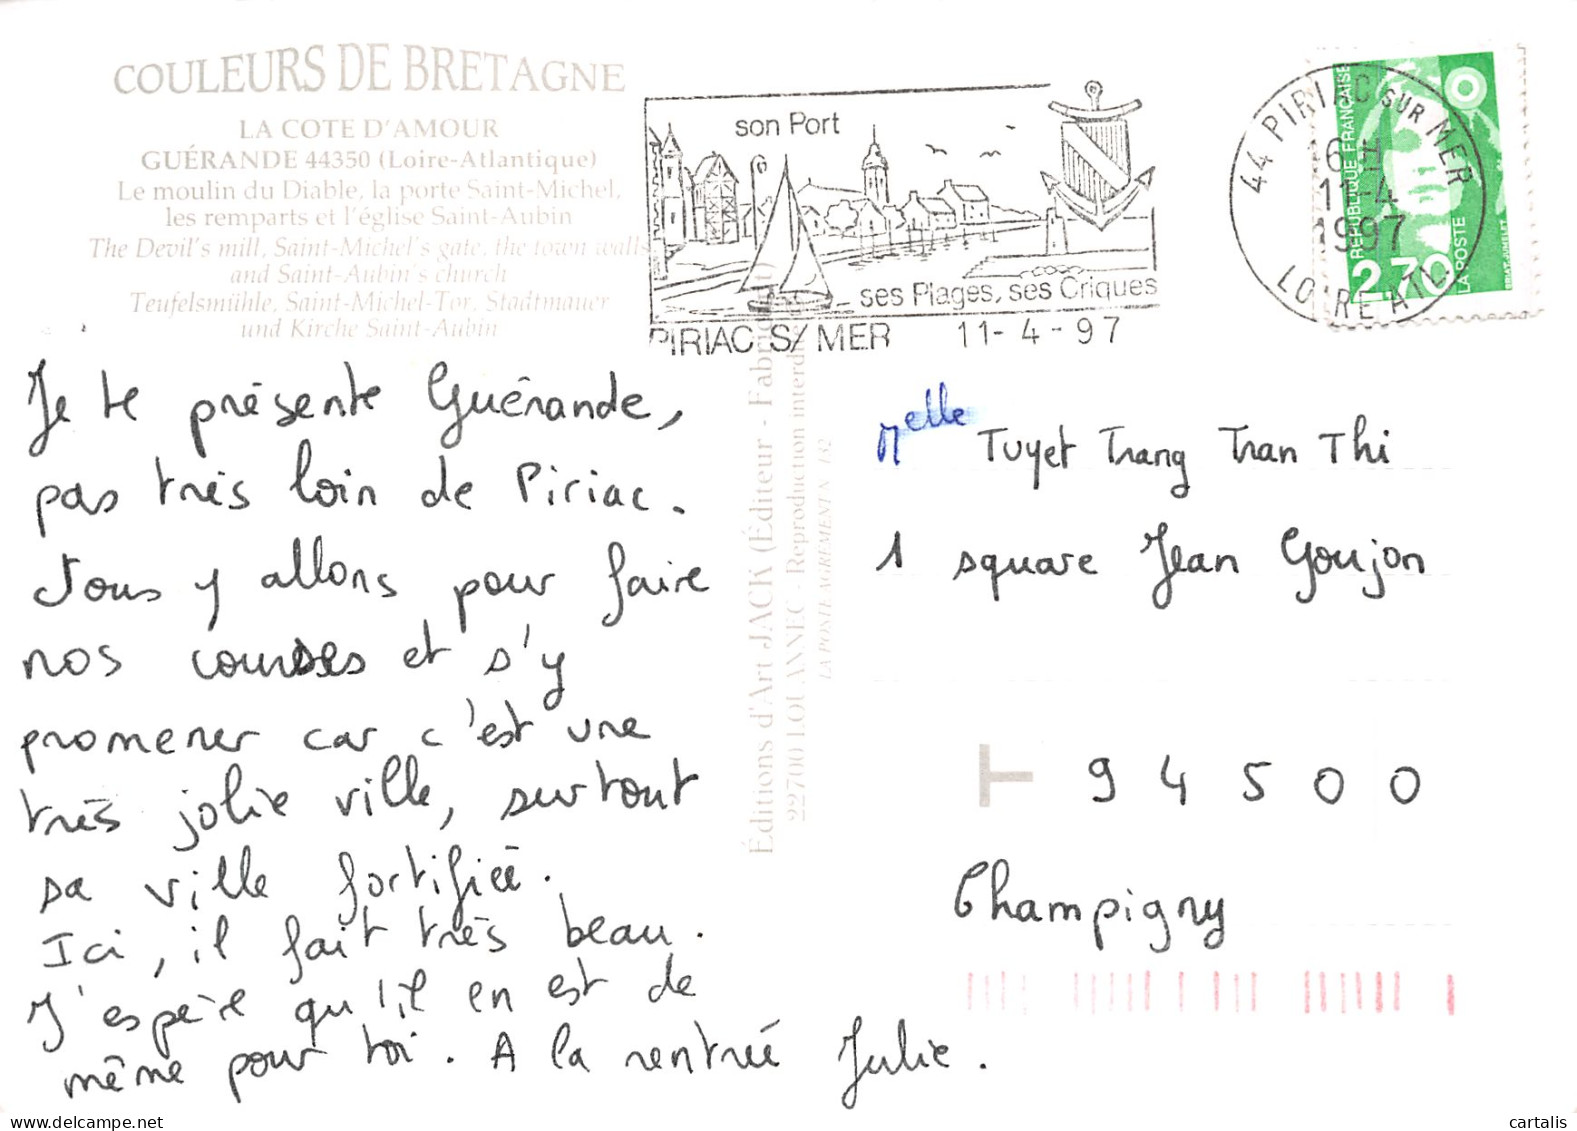 COULEURS DE BRETAGNE
LA COTE D'AMOUR
GUÉRANDE 44350 (Loire-Atlantique)
Le moulin du Diable, la porte Saint-Michel,
les remparts et l'église Saint-Aubin
The Devil's mill, Saint-Michel's gate, the town walls
and Saint-Aubin's church
Teufelsmühle, Saint-Michel-Tor, Stadtmauer
und Kirche Saint-Aubin
son Port
ses Plages, ses Criques
PIRIAC S/ MER 11-4-97
44 PIRIAC SUR MER
16 H
11-4
1997
LOIRE ATL.
RÉPUBLIQUE FRANÇAISE
2,70
LA POSTE
Je te présente Guérande,
pas très loin de Piriac.
Nous y allons pour faire
nos courses et s'y
promener car c'est une
très jolie ville, surtout
sa ville fortifiée.
Ici, il fait très beau.
J'espère qu'il en est de
même pour toi. A la rentrée Julie.
Éditions d'Art JACK (Éditeur - Fabricant)
22700 LOUANNEC - Reproduction interdite
LA POSTE AGREMENT N° 132
Melle Tuyet Trang Tran Thi
1 square Jean Goujon
T 94500
Champigny
cartalis